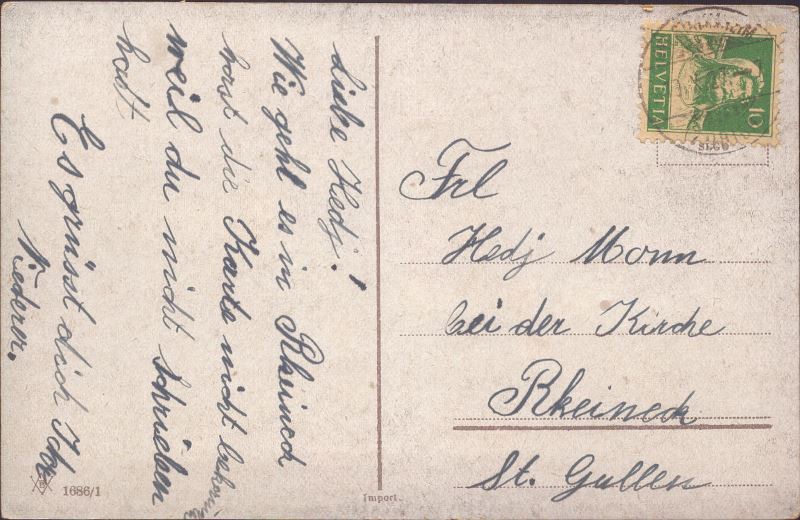 Liebe Hedj!
Wie geht es in Rheineck
hast die Karte nicht
weil du nicht schrieben
hast.
Es grüsst dich Ida
Niederer.
Frl
Hedj Monn
bei der Kirche
Rheineck
St. Gallen
HELVETIA
10
1686/1
Import.